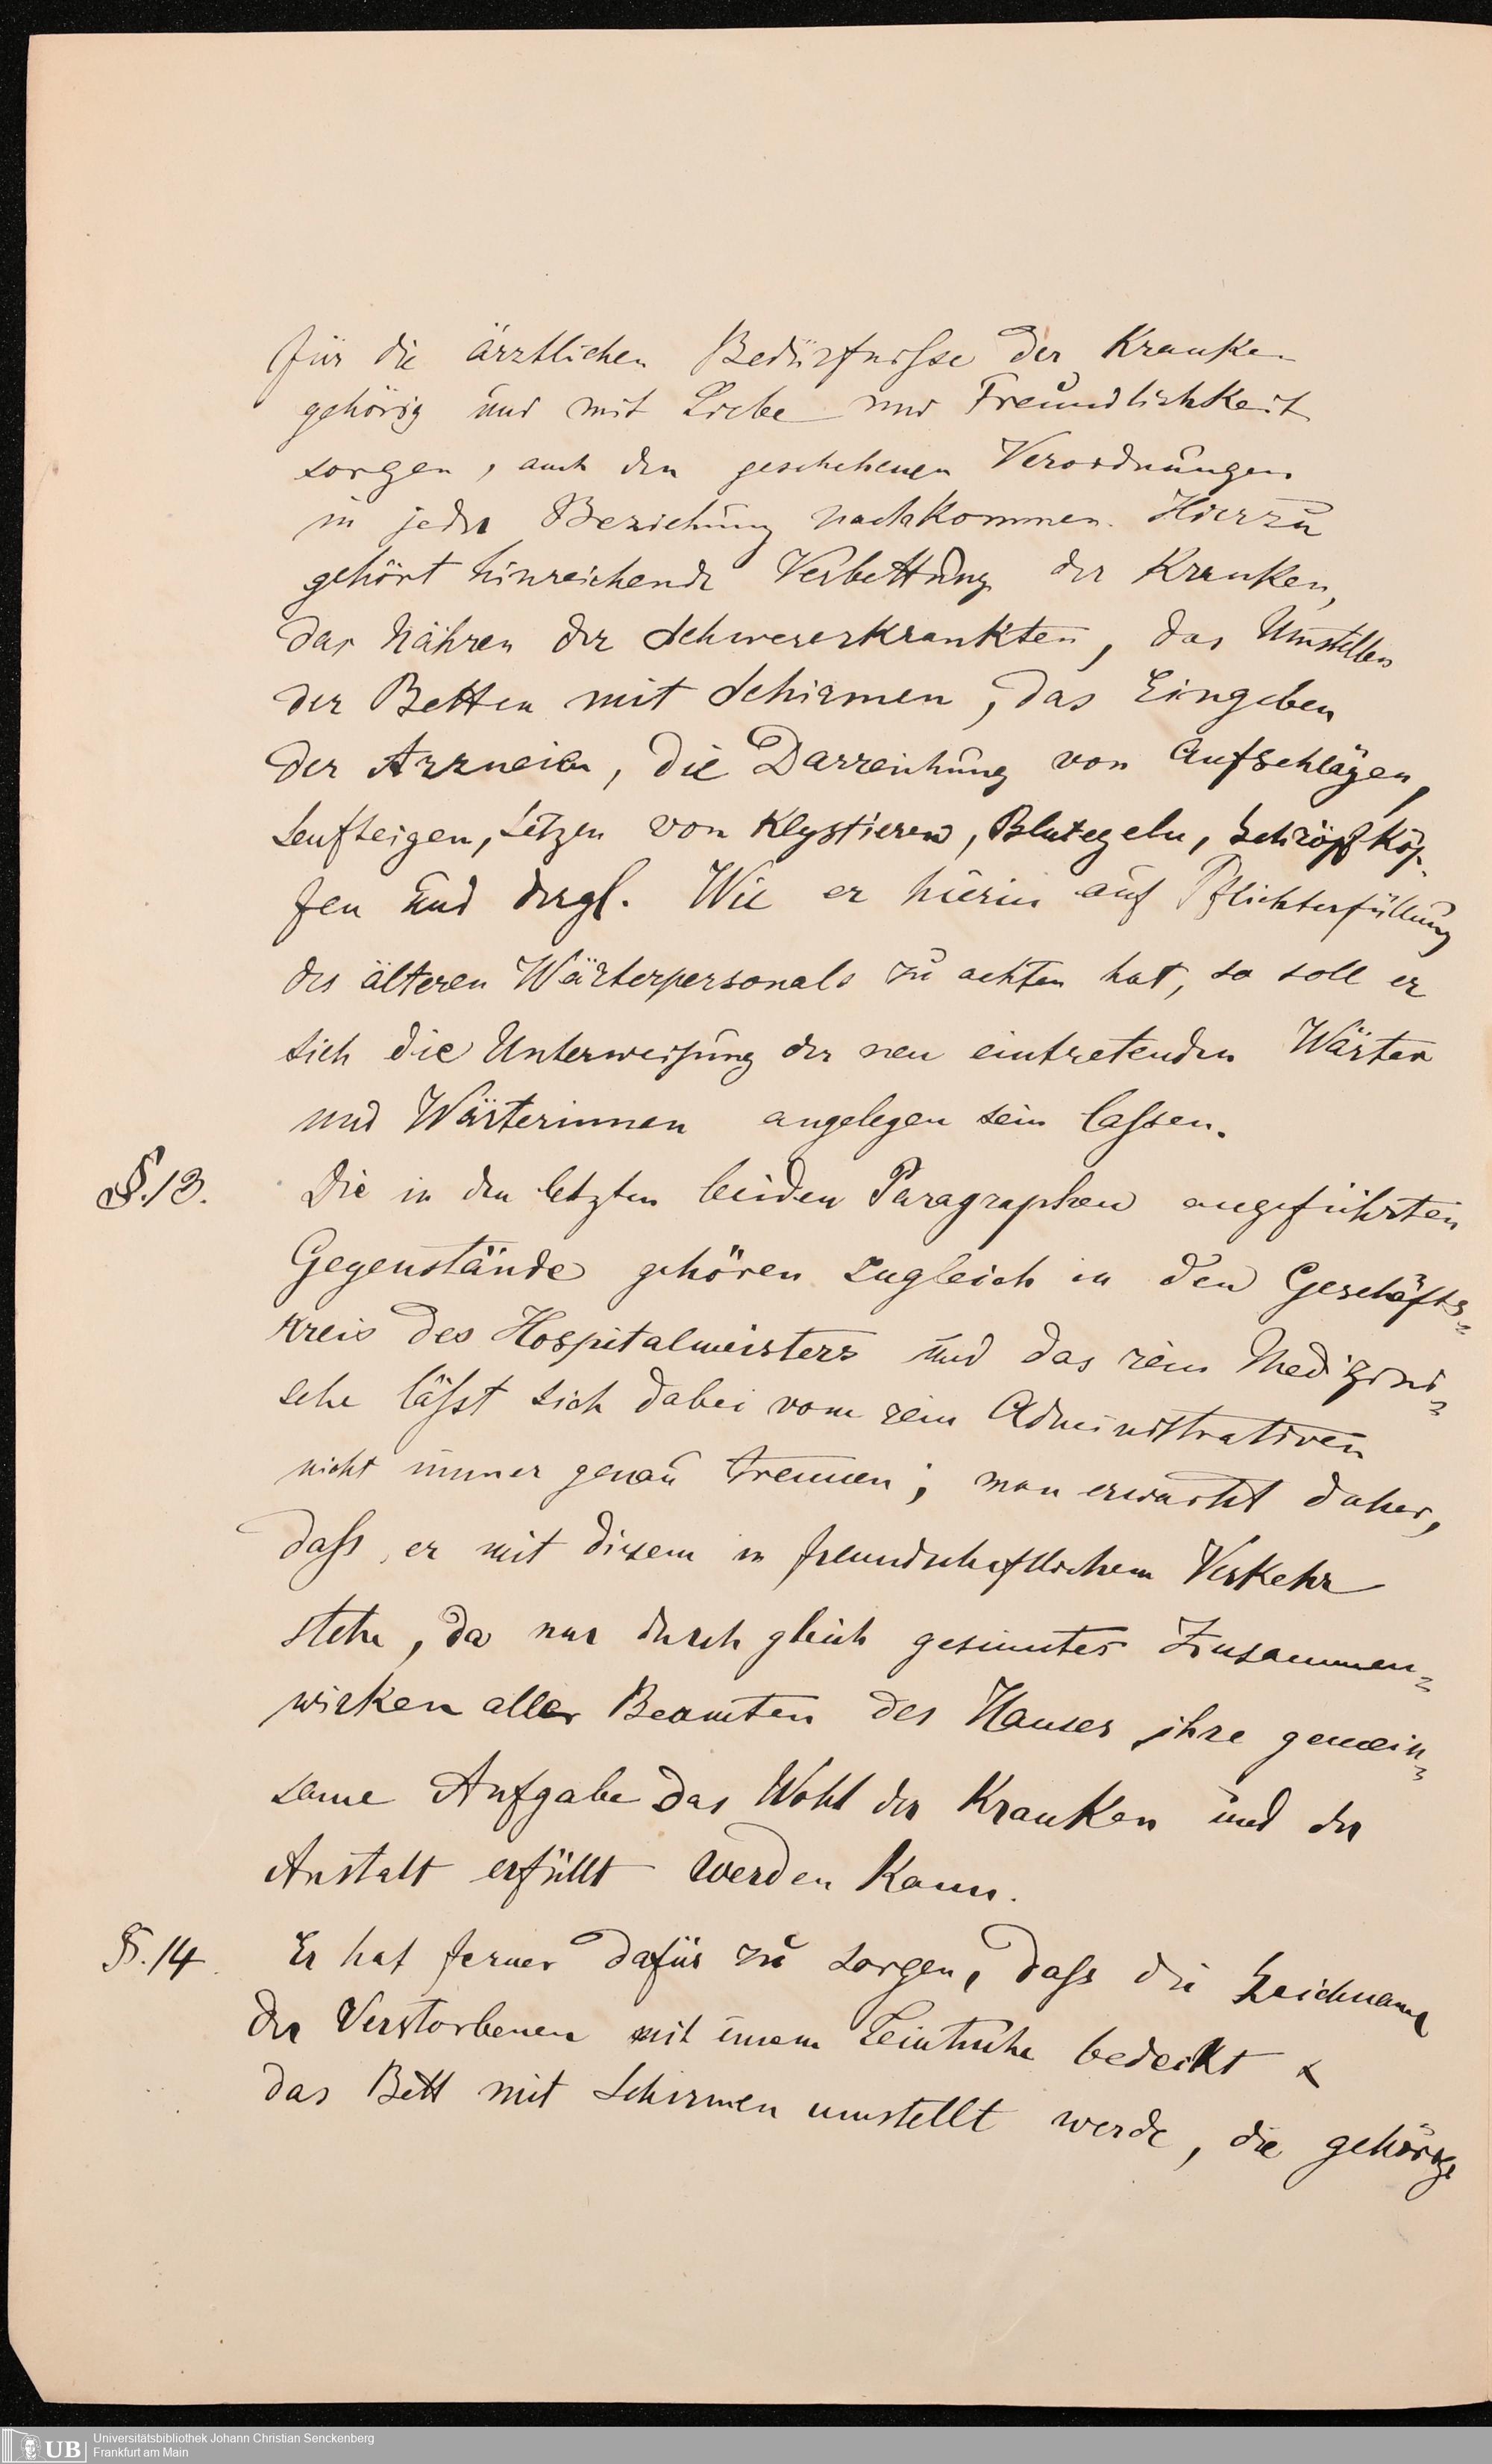 für die ärztlichen Bedürfnisse der Kranken
gehörig und mit Liebe und Freundlichkeit
sorgen, auch den geschehenen Verordnungen
in jeder Beziehung nachkommen. Hierzu
gehört hinreichende Verbettung der Kranken,
das Nähren der Schwererkrankten, das Umstellen
der Betten mit Schirmen, das Eingeben
der Arzneien, die Darreichung von Aufschlägen,
Senfteigen, Setzen von Klystieren, Blutegeln, Schröpfköp-
fen und drgl. Wie er hierin auf Pflichterfüllung
des älteren Wärterpersonals zu achten hat, so soll er
sich die Unterweisung der neu eintretenden Wärter
und Wärterinnen angelegen sein lassen.
§. 13. Die in den letzten beiden Paragraphen angeführten
Gegenstände gehören zugleich in den Geschäfts-
kreis des Hospitalmeisters und das rein Medizini-
sche lässt sich dabei vom rein Administrativen
nicht immer genau trennen; man erwartet daher,
dass er mit diesem in freundschaftlichem Verkehr
stehe, da nur durch gleich gesinntes Zusammen-
wirken aller Beamten des Hauses ihre gemein-
same Aufgabe das Wohl der Kranken und der
Anstalt erfüllt werden kann.
§. 14 Er hat ferner dafür zu sorgen, dass die Leichname
der Verstorbenen mit einem Leintuche bedeckt &
das Bett mit Schirmen umstellt werde, die gehörige
UB
Universitätsbibliothek Johann Christian Senckenberg
Frankfurt am Main